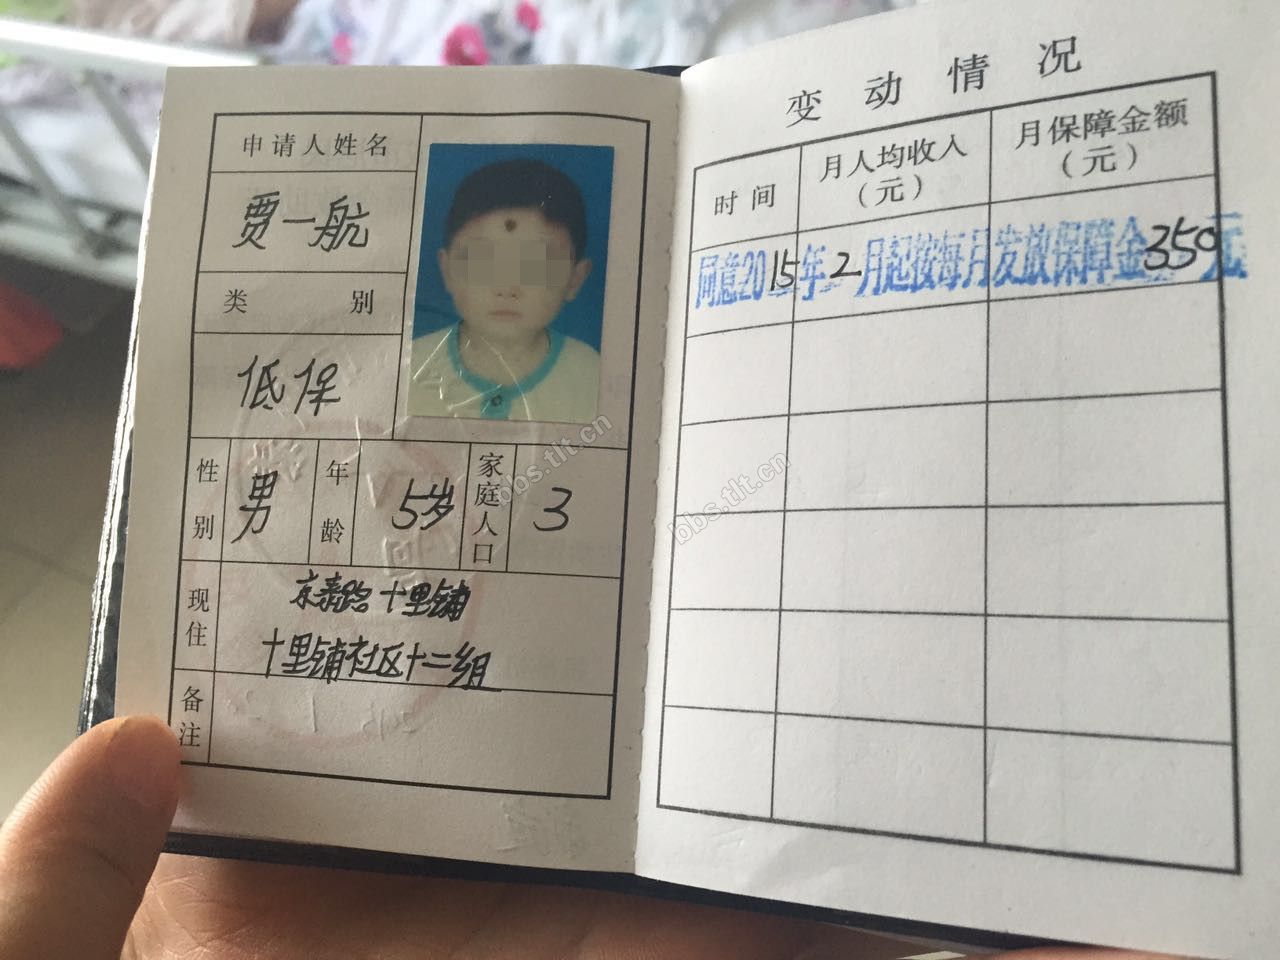 申请人姓名
贾一航
类别
低保
性别
男
年龄
5岁
家庭人口
3
现住
京青路十里铺
十里铺社区十二组
备注
变动情况
时间
月人均收入
（元）
月保障金额
（元）
同意2015年2月起按每月发放保障金350元
bbs.tlt.cn
bbs.tlt.cn